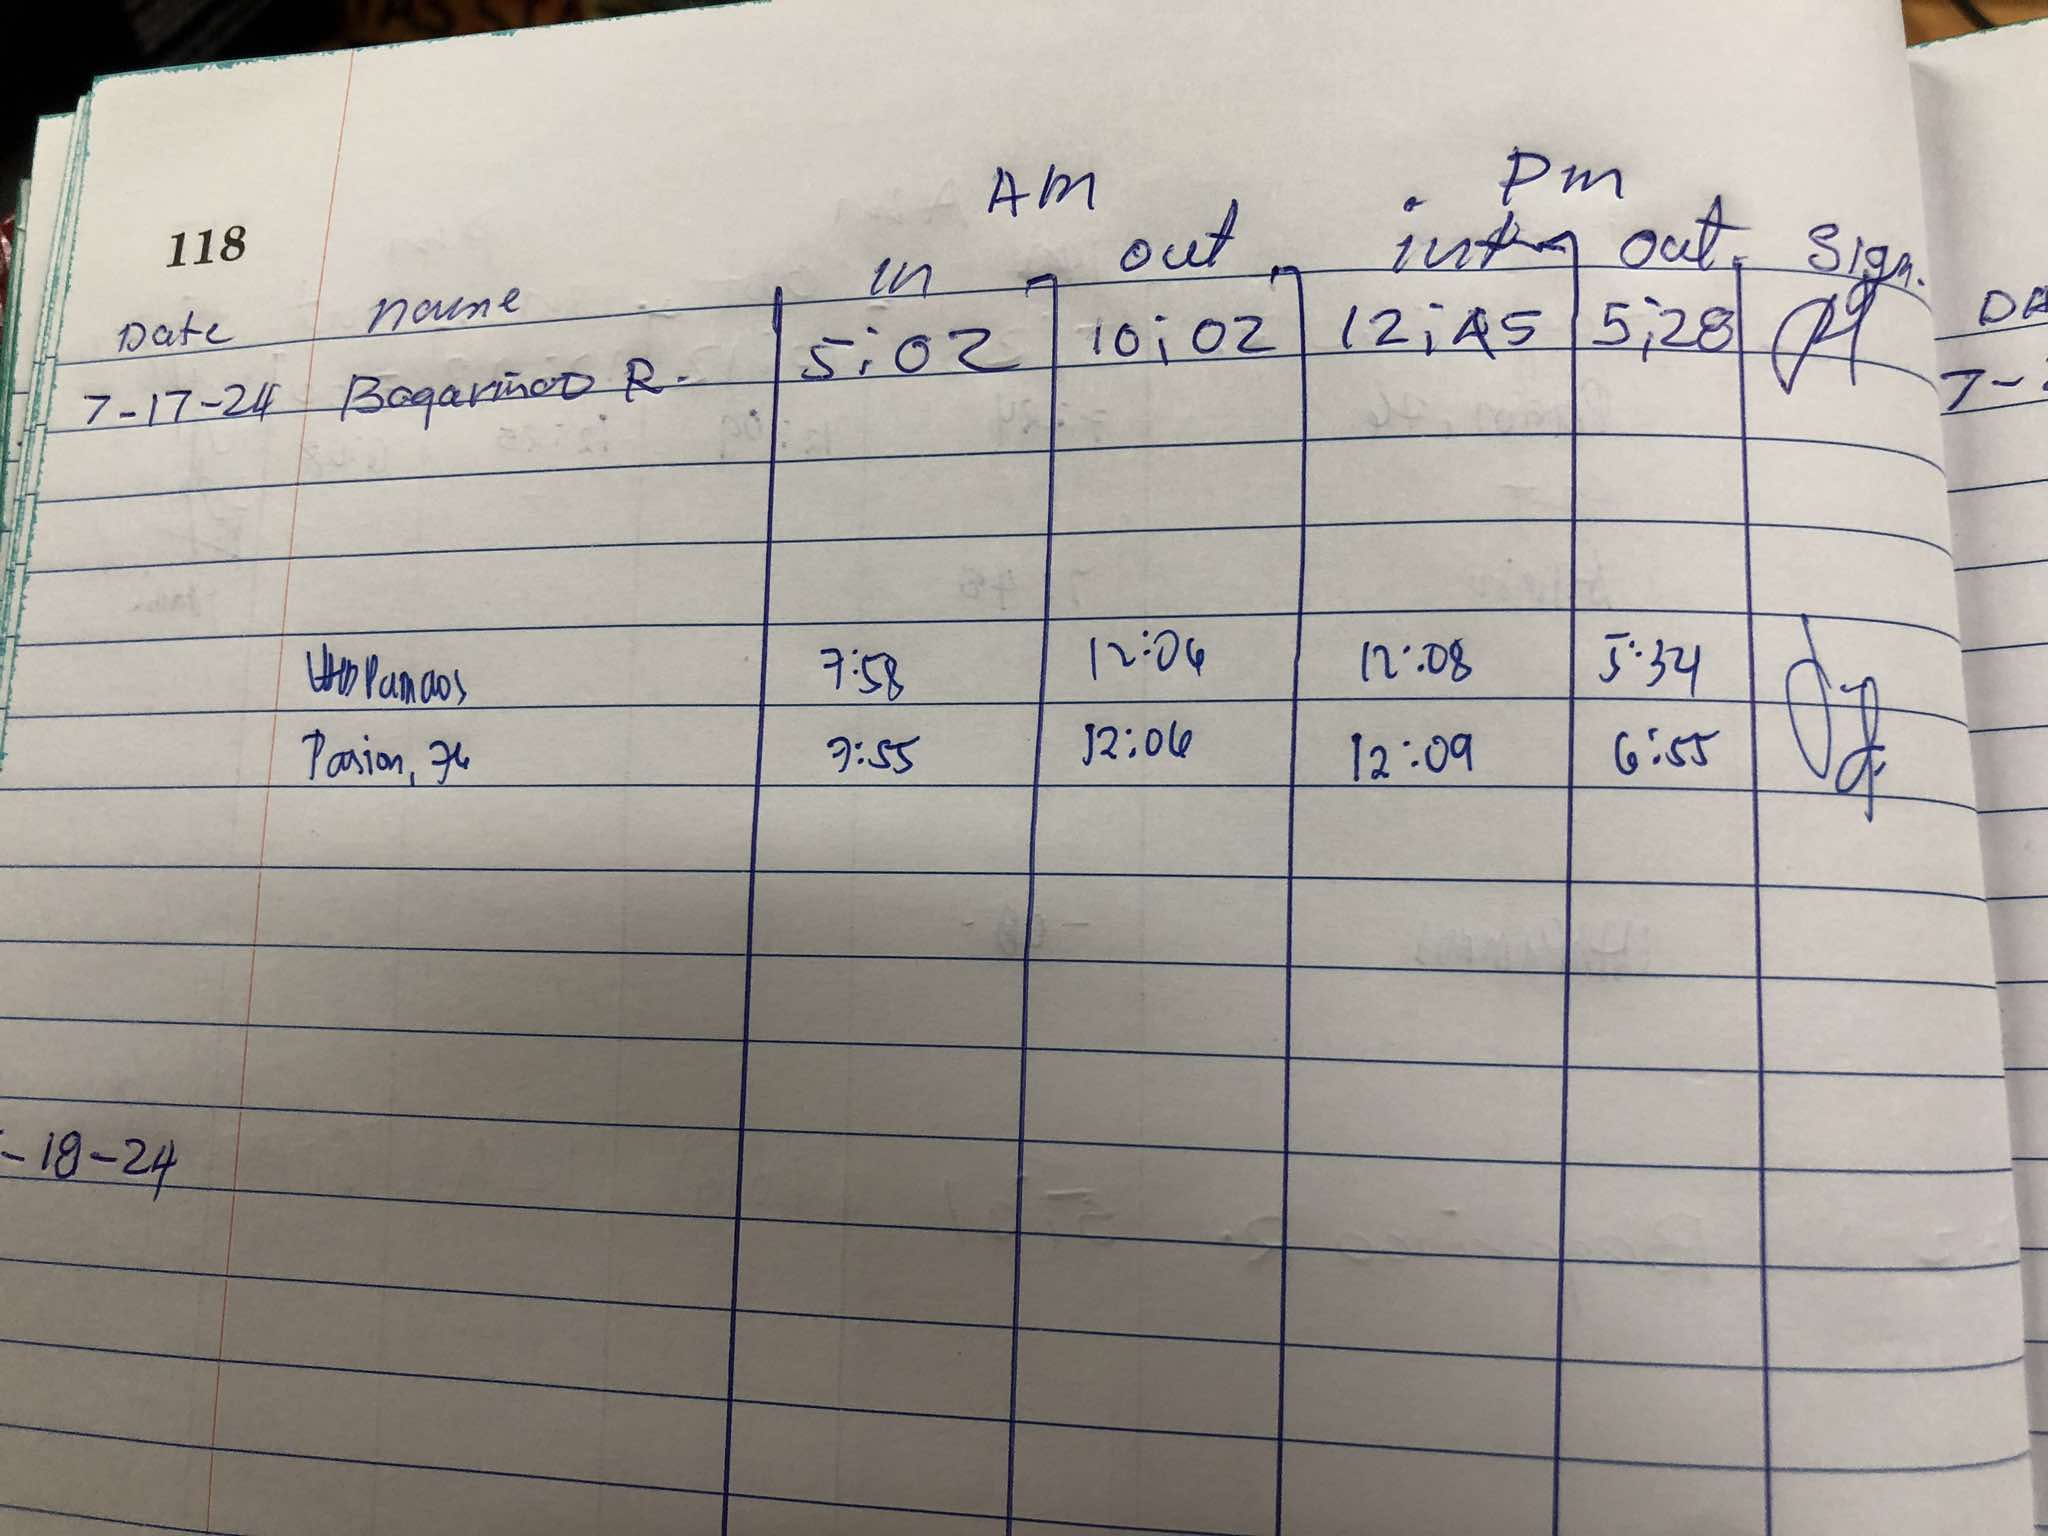 118
AM Pm
Date name in out in out Sign.
7-17-24 Bagariñao R. 5:02 10:02 12:45 5:28
Pamaos 7:58 12:06 12:08 5:34
Pasion, 7:55 12:06 12:09 6:55
-18-24
DA
7-